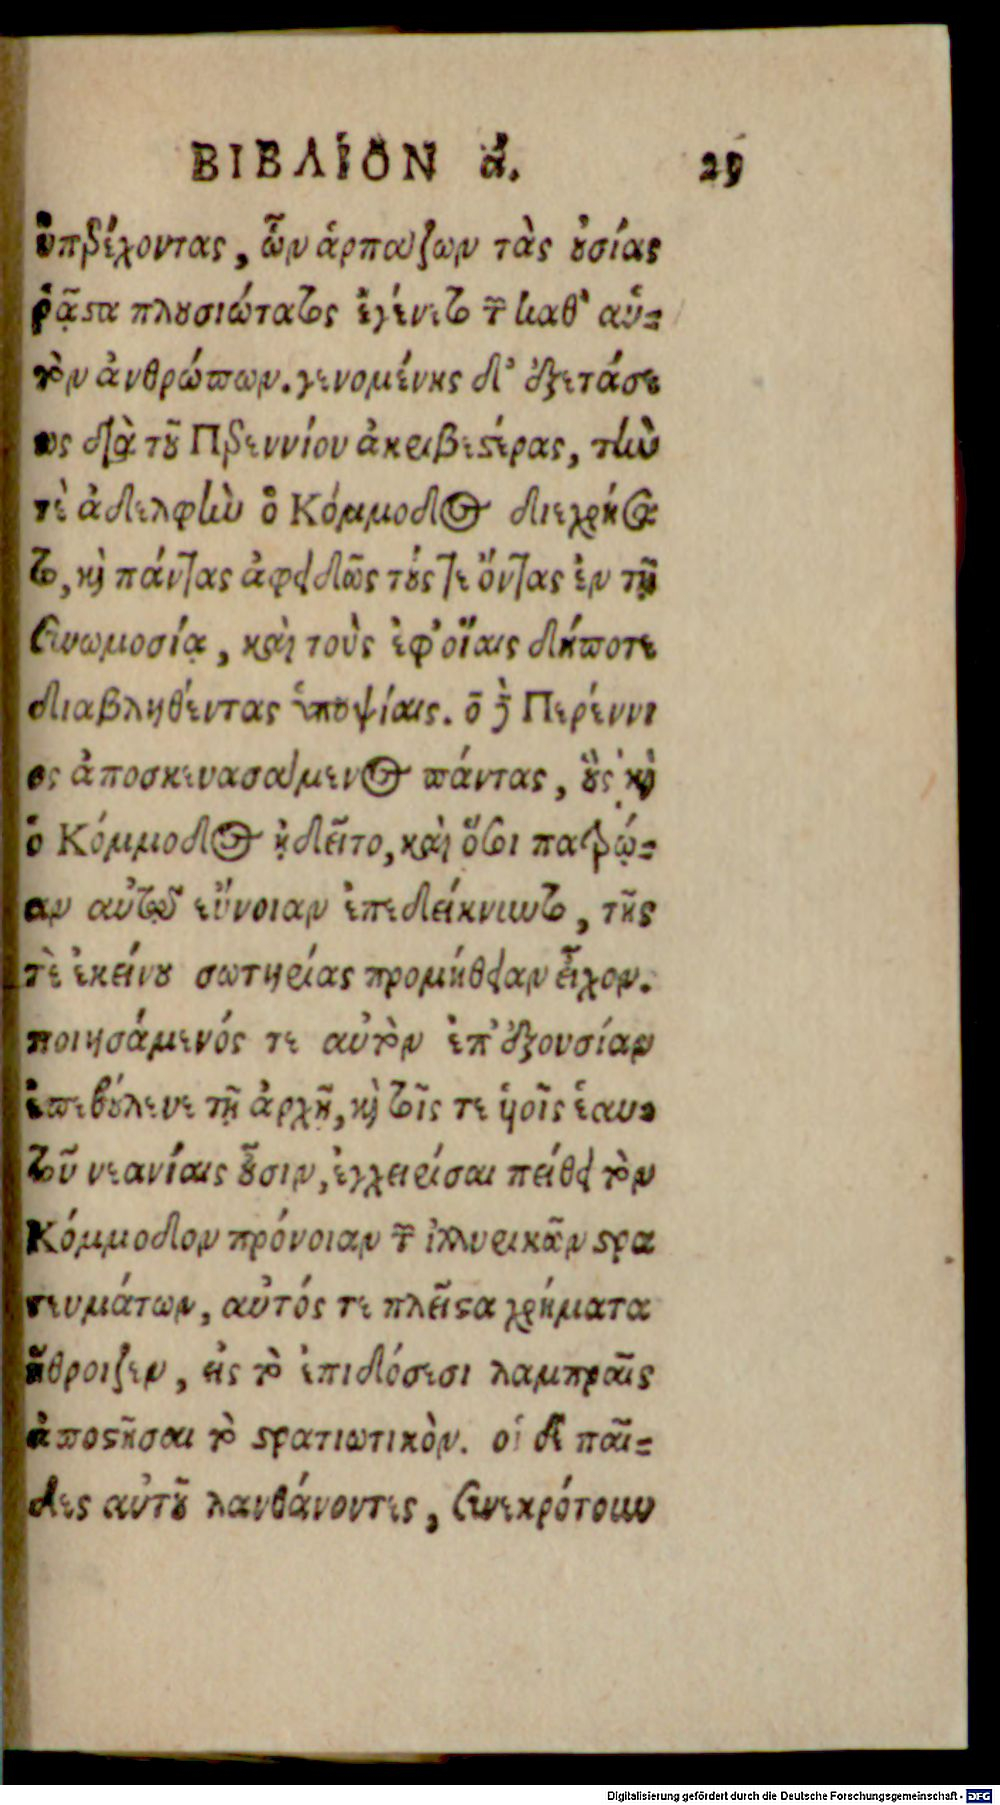 ΒΙΒΛΙΟΝ ά. 29
ὑπερέχοντας, ὧν ἁρπάζων τὰς οὐσίας
ῥᾷστα πλουσιώτατος ἐγένετο τῶν καθ' αὑ-
τὸν ἀνθρώπων. γενομένης δ' ἐξετάσε
ως διὰ τοῦ Περεννίου ἀκριβεστέρας, τήν
τὲ ἀδελφὴν ὁ Κόμμοδος διεχρήσα
το, καὶ πάντας ἀφειδῶς τούς τε ὄντας ἐν τῇ
συνωμοσίᾳ, καὶ τοὺς ἐφ' οἵαις δήποτε
διαβληθέντας ὑποψίαις. ὁ δὲ Περέννι
ος ἀποσκευασάμενος πάντας, οὓς καὶ
ὁ Κόμμοδος ᾐδεῖτο, καὶ ὅσοι πατρῴ-
αν αὐτῷ εὔνοιαν ἐπεδείκνυντο, τῆς
τὲ ἐκείνου σωτηρίας προμήθειαν εἶχον.
ποιησάμενός τε αὐτὸν ἐπ' ἐξουσίαν
ἐπεβούλευε τῇ ἀρχῇ, καὶ τοῖς τε υἱοῖς ἑαυ-
τοῦ νεανίαις οὖσιν, ἐγχειρίσαι πείθει τὸν
Κόμμοδον πρόνοιαν τῶν ἰλλυρικῶν στρα
τευμάτων, αὐτός τε πλεῖστα χρήματα
ἤθροιζεν, εἰς τὸ ἐπιδόσεσι λαμπραῖς
ἀποστῆσαι τὸ στρατιωτικὸν. οἱ δὲ παῖ-
δες αὐτοῦ λανθάνοντες, συνεκρότουν
Digitalisierung gefördert durch die Deutsche Forschungsgemeinschaft - DFG